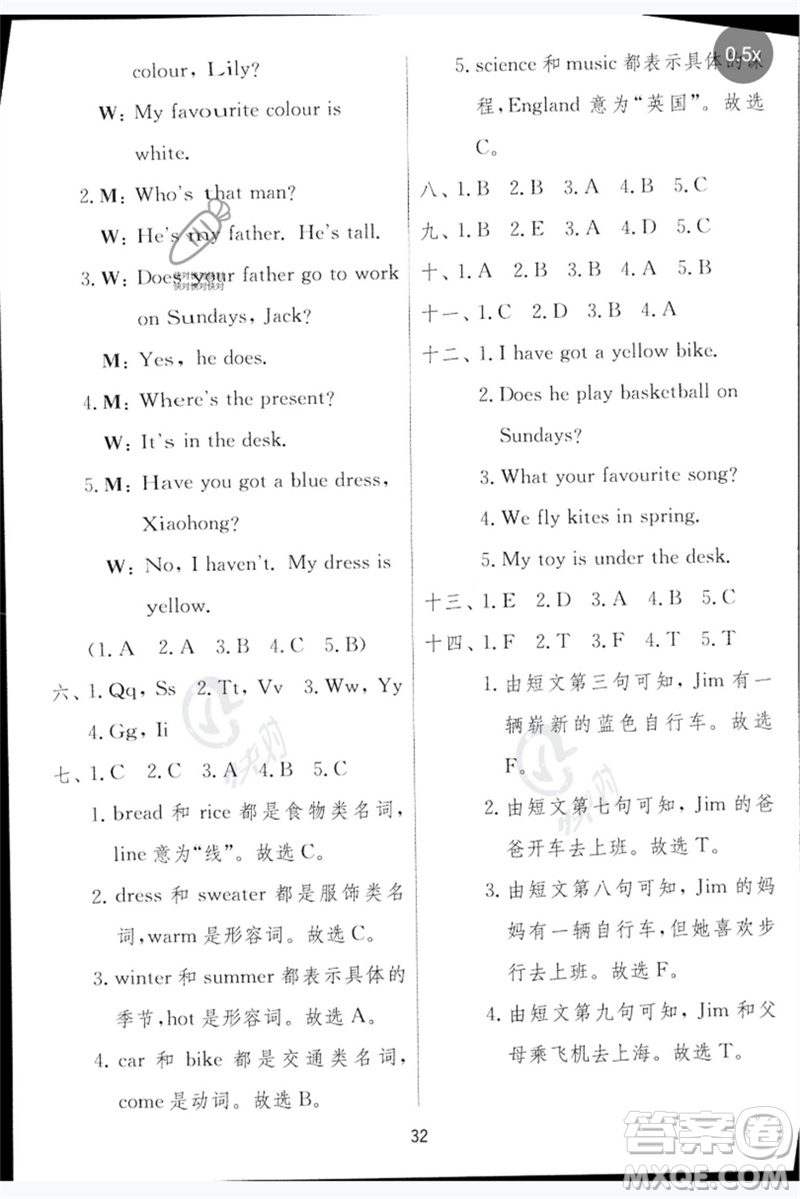 colour, Lily?
W: My favourite colour is
white.
2. M: Who's that man?
W: He's my father. He's tall.
3. W: Does your father go to work
on Sundays, Jack?
M: Yes, he does.
4. M: Where's the present?
W: It's in the desk.
5. M: Have you got a blue dress,
Xiaohong?
W: No, I haven't. My dress is
yellow.
(1. A 2. A 3. B 4. C 5. B)
六、1. Qq, Ss 2. Tt, Vv 3. Ww, Yy
4. Gg, Ii
七、1. C 2. C 3. A 4. B 5. C
1. bread 和 rice 都是食物类名词,
line 意为“线”。故选 C。
2. dress 和 sweater 都是服饰类名
词,warm 是形容词。故选 C。
3. winter 和 summer 都表示具体的
季节,hot 是形容词。故选 A。
4. car 和 bike 都是交通类名词,
come 是动词。故选 B。
5. science 和 music 都表示具体的课
程,England 意为“英国”。故选
C。
八、1. B 2. B 3. A 4. B 5. C
九、1. B 2. E 3. A 4. D 5. C
十、1. A 2. B 3. B 4. A 5. B
十一、1. C 2. D 3. B 4. A
十二、1. I have got a yellow bike.
2. Does he play basketball on
Sundays?
3. What your favourite song?
4. We fly kites in spring.
5. My toy is under the desk.
十三、1. E 2. D 3. A 4. B 5. C
十四、1. F 2. T 3. F 4. T 5. T
1. 由短文第三句可知, Jim 有一
辆崭新的蓝色自行车。故选
F。
2. 由短文第七句可知, Jim 的爸
爸开车去上班。故选 T。
3. 由短文第八句可知, Jim 的妈
妈有一辆自行车,但她喜欢步
行去上班。故选 F。
4. 由短文第九句可知, Jim 和父
母乘飞机去上海。故选 T。
32
0.5x
快对快对快对
快对快对快对
快对
快对
答案圈
MXQE.COM